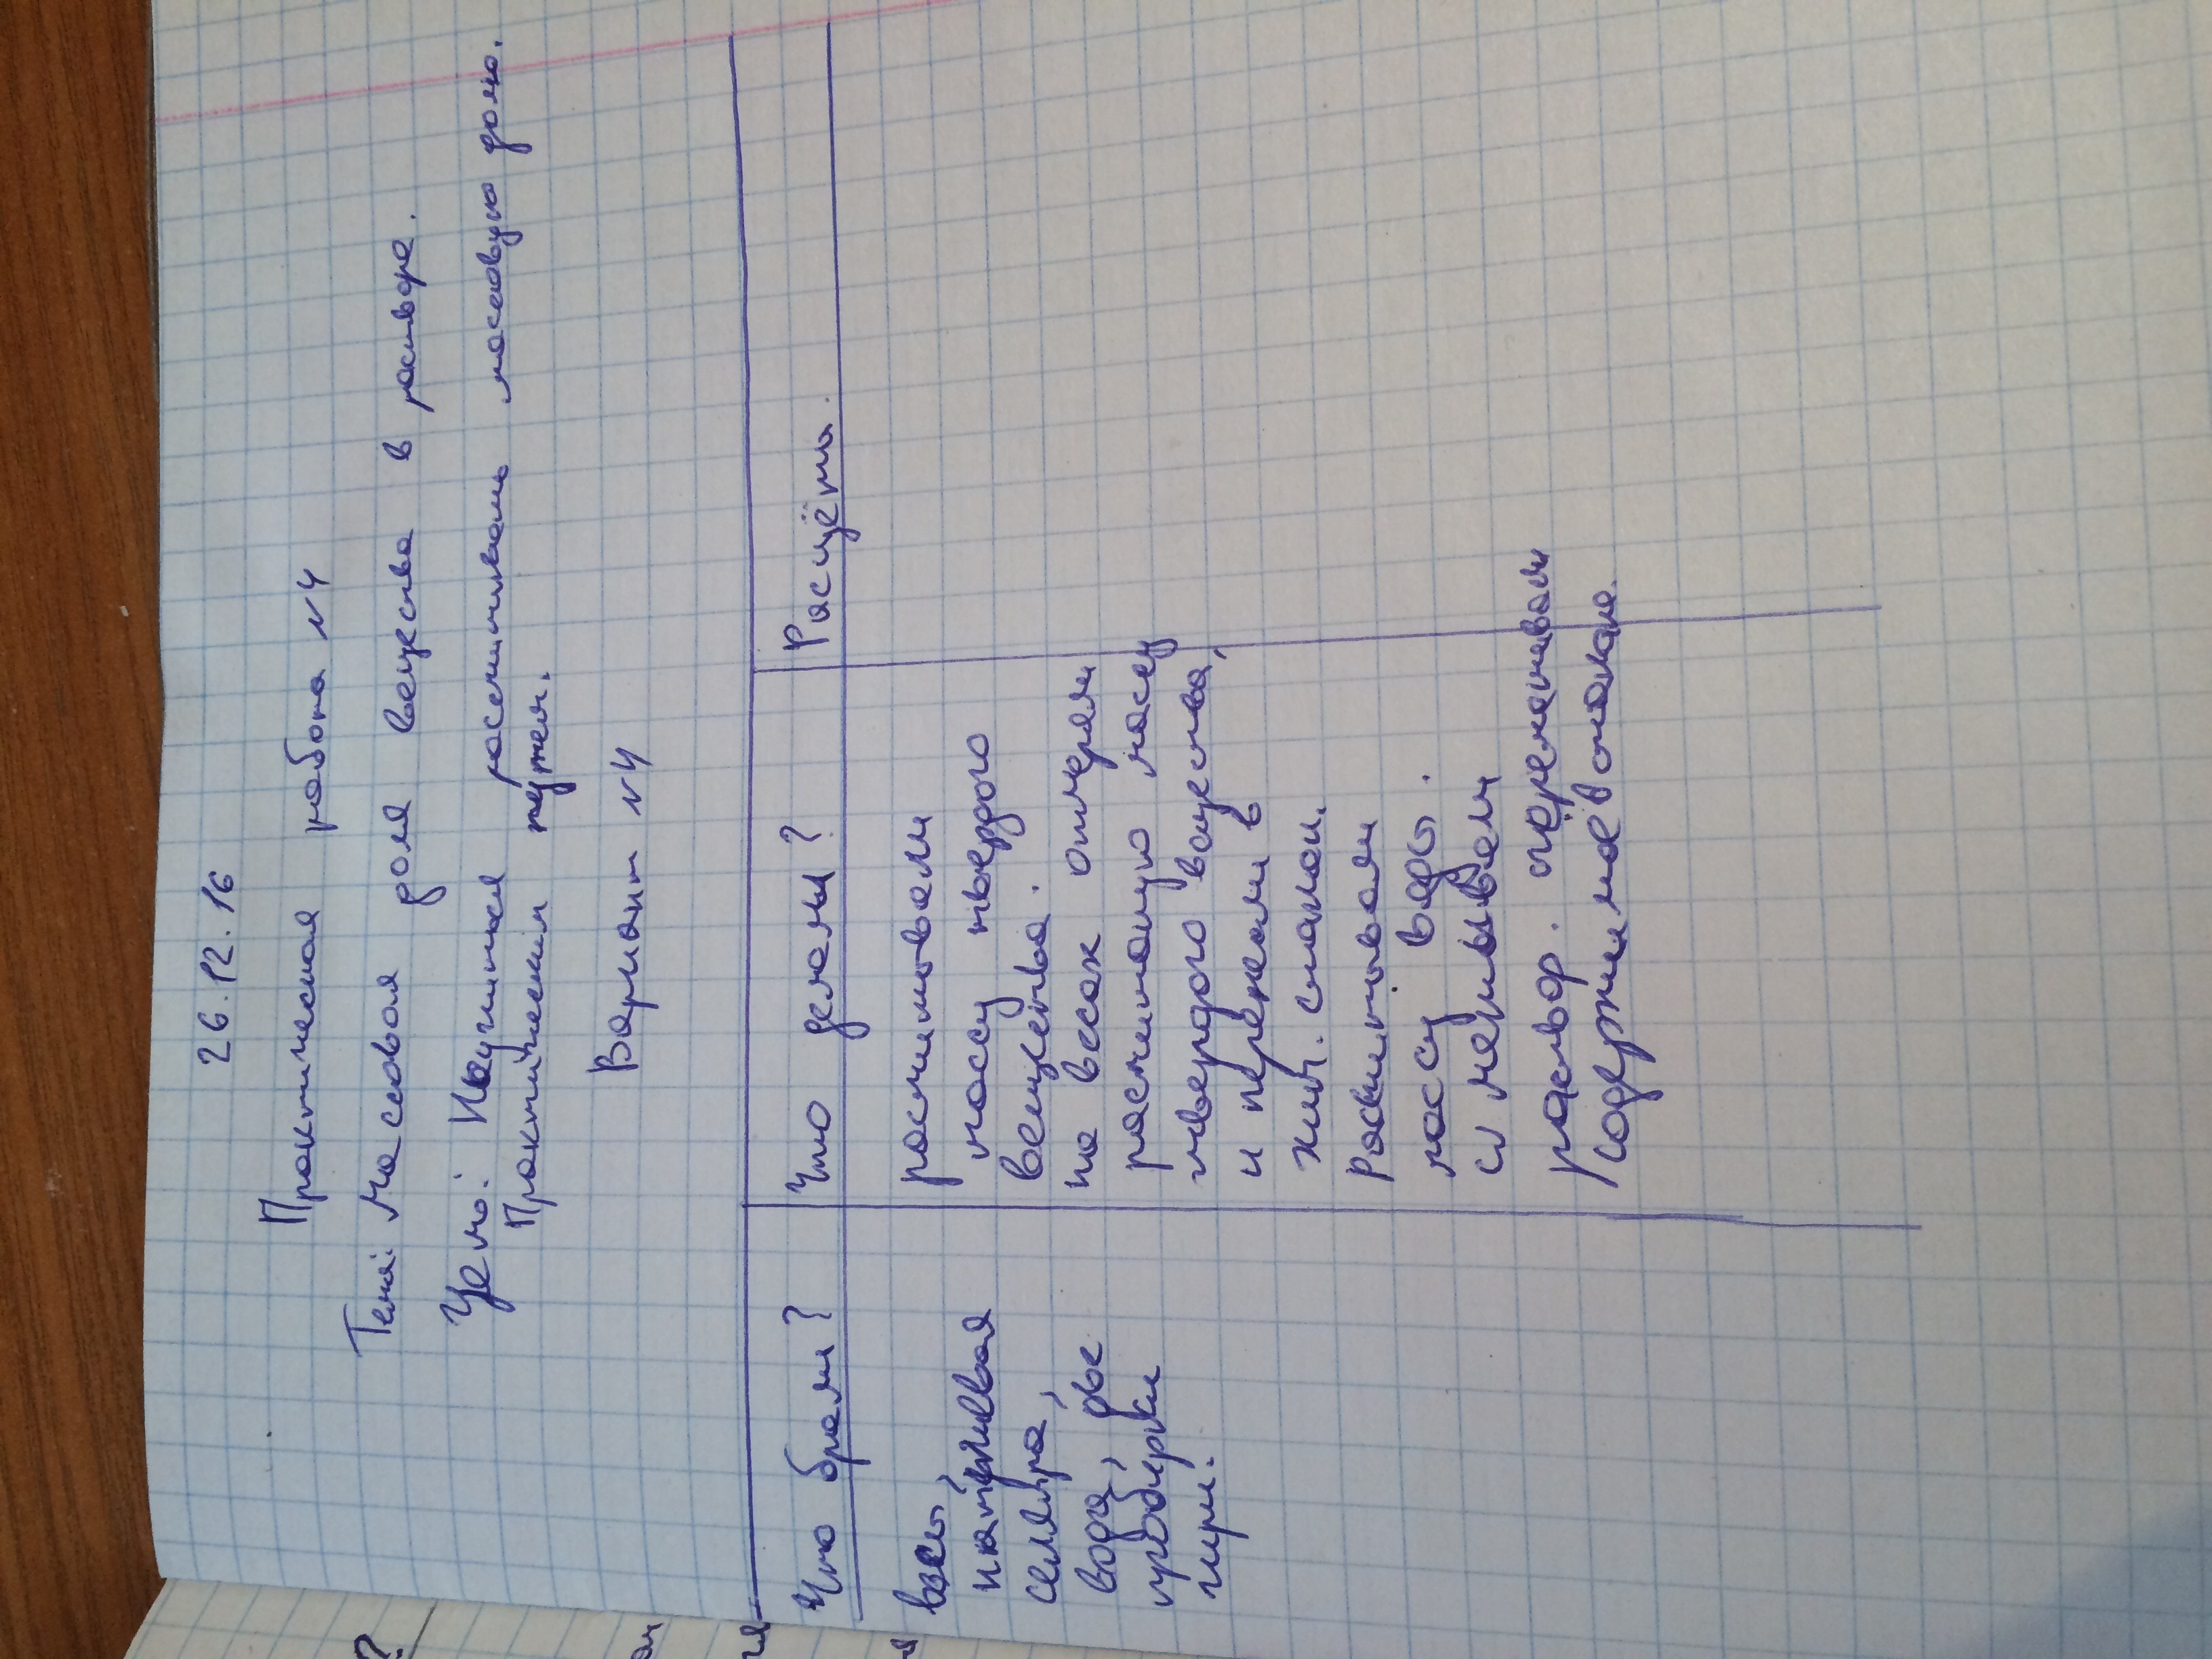 26.12.16
Практическая работа №4
Тема: Массовая доля вещества в растворе.
Цель: Научится расчитывать массовую долю.
Практическим путем.
Вариант №4
Что брали?
Что делали?
Расщёты.
весы,
натриевая
селитра,
вода, две
пробирки
гири.
расчитывали
массу твердого
вещества.
на весах отмеряли
расчитаную массу
твердого вещества,
и пержали в
хим. стакан.
Расчитывали
массу воды.
с мешивали
раствор.
содержимое в стакане.